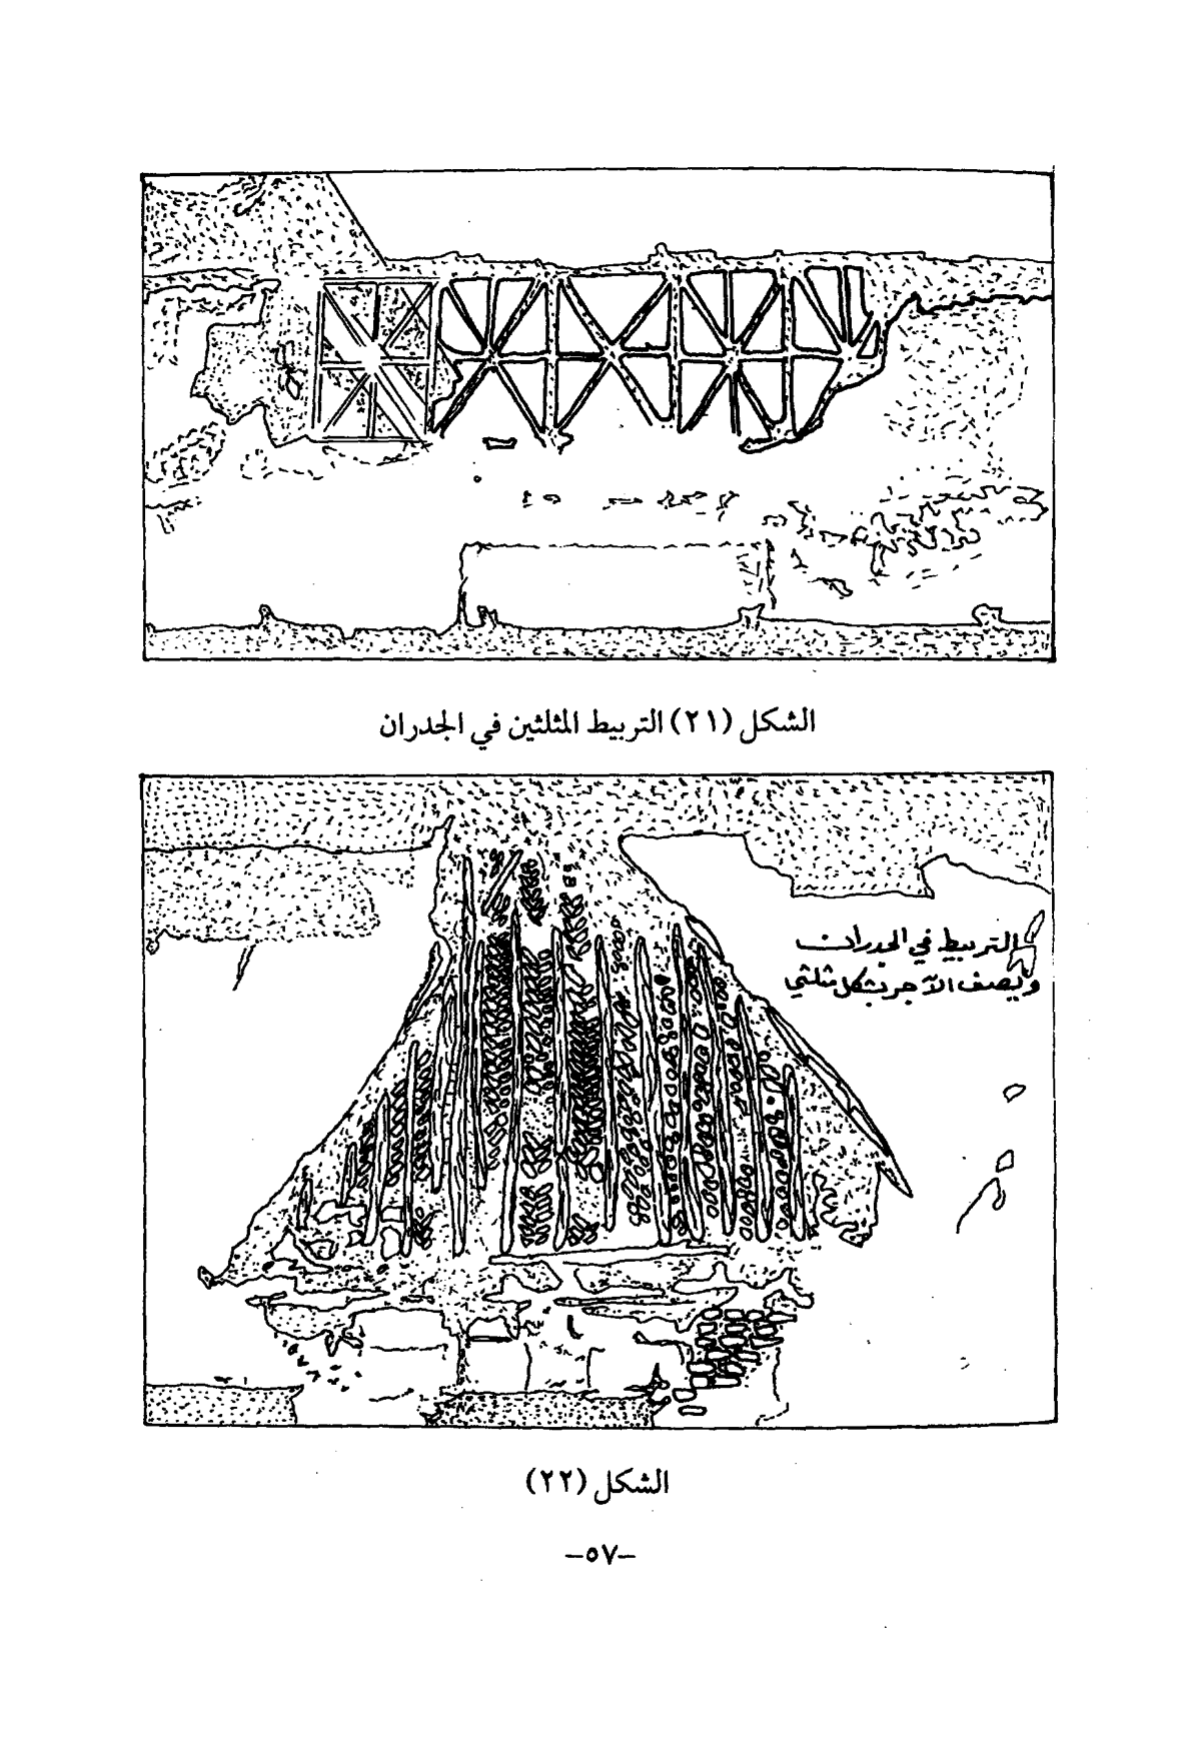 الشكل (٢١) التربيط المثلثين في الجدران
التربيط في الجدران
ويصف الآجر بشكل مثلثي
الشكل (٢٢)
-٥٧-